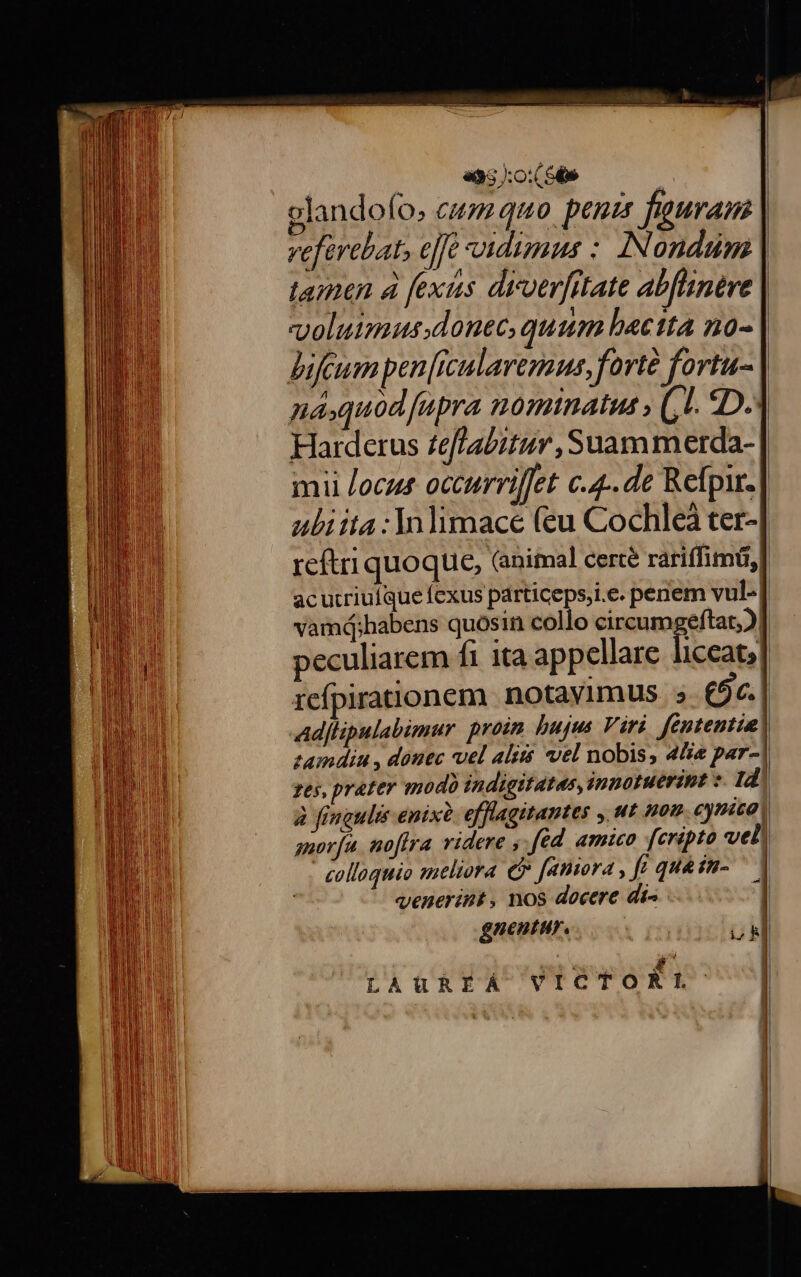 ):o:(
glandoſo, cum quo penis figuram
referebat, eſſe vidimus : Nondùm
tamen à ſexûs diverſitate abſtinêre
voluimus, donec, quum hæc ita no-
biſcum penſicularemus, fortè fortu-
nâ, quòd ſupra nominatus, (l. D.
Harderus teſtabitur, Suammerda-
mii locus occurriſſet c. 4. de Reſpir.
ubi ita : In limace ſeu Cochleâ ter-
reſtri quoque, (animal certè rariſſimũ,
ac utriuſque ſexus particeps, i.e. penem vul-
vamq́; habens quos in collo circumgeſtat,)
peculiarem ſi ita appellare liceat,
reſpirationem notavimus , &c.
Adſtipulabimur proin hujus Viri ſententiæ
tamdiu, donec vel aliis vel nobis, aliæ par-
tes, præter modò indigitatas, innotuerint : Id
à ſingulis enixè efflagitantes , ut non cynico
morſu noſtra ridere , ſed amico ſcripto vel
colloquio meliora & ſaniora , ſi quæ in-
venerint, nos docere di-
gnentur.
LAUREA VICTORI